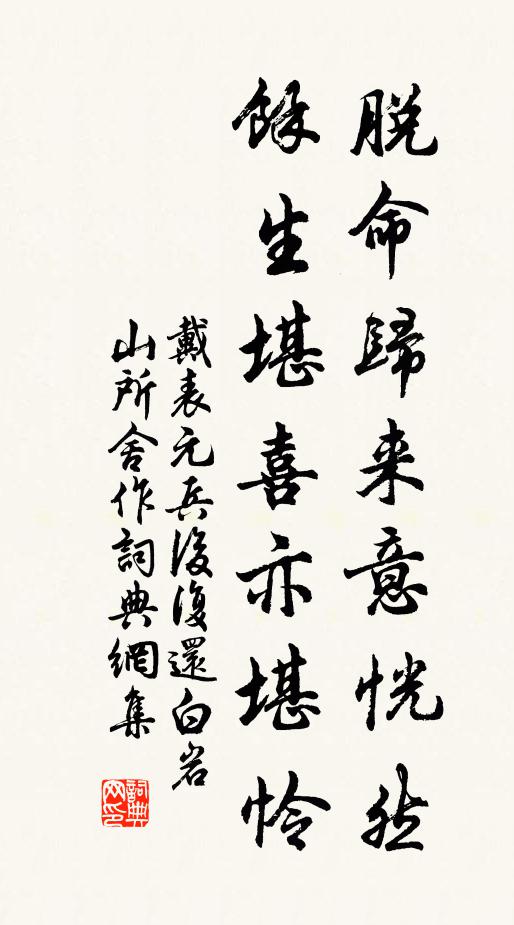 脱命歸来意恍然
餘生堪喜亦堪憐
戴表元兵後復還白岩
山所舍作詞典網集
詞典网印